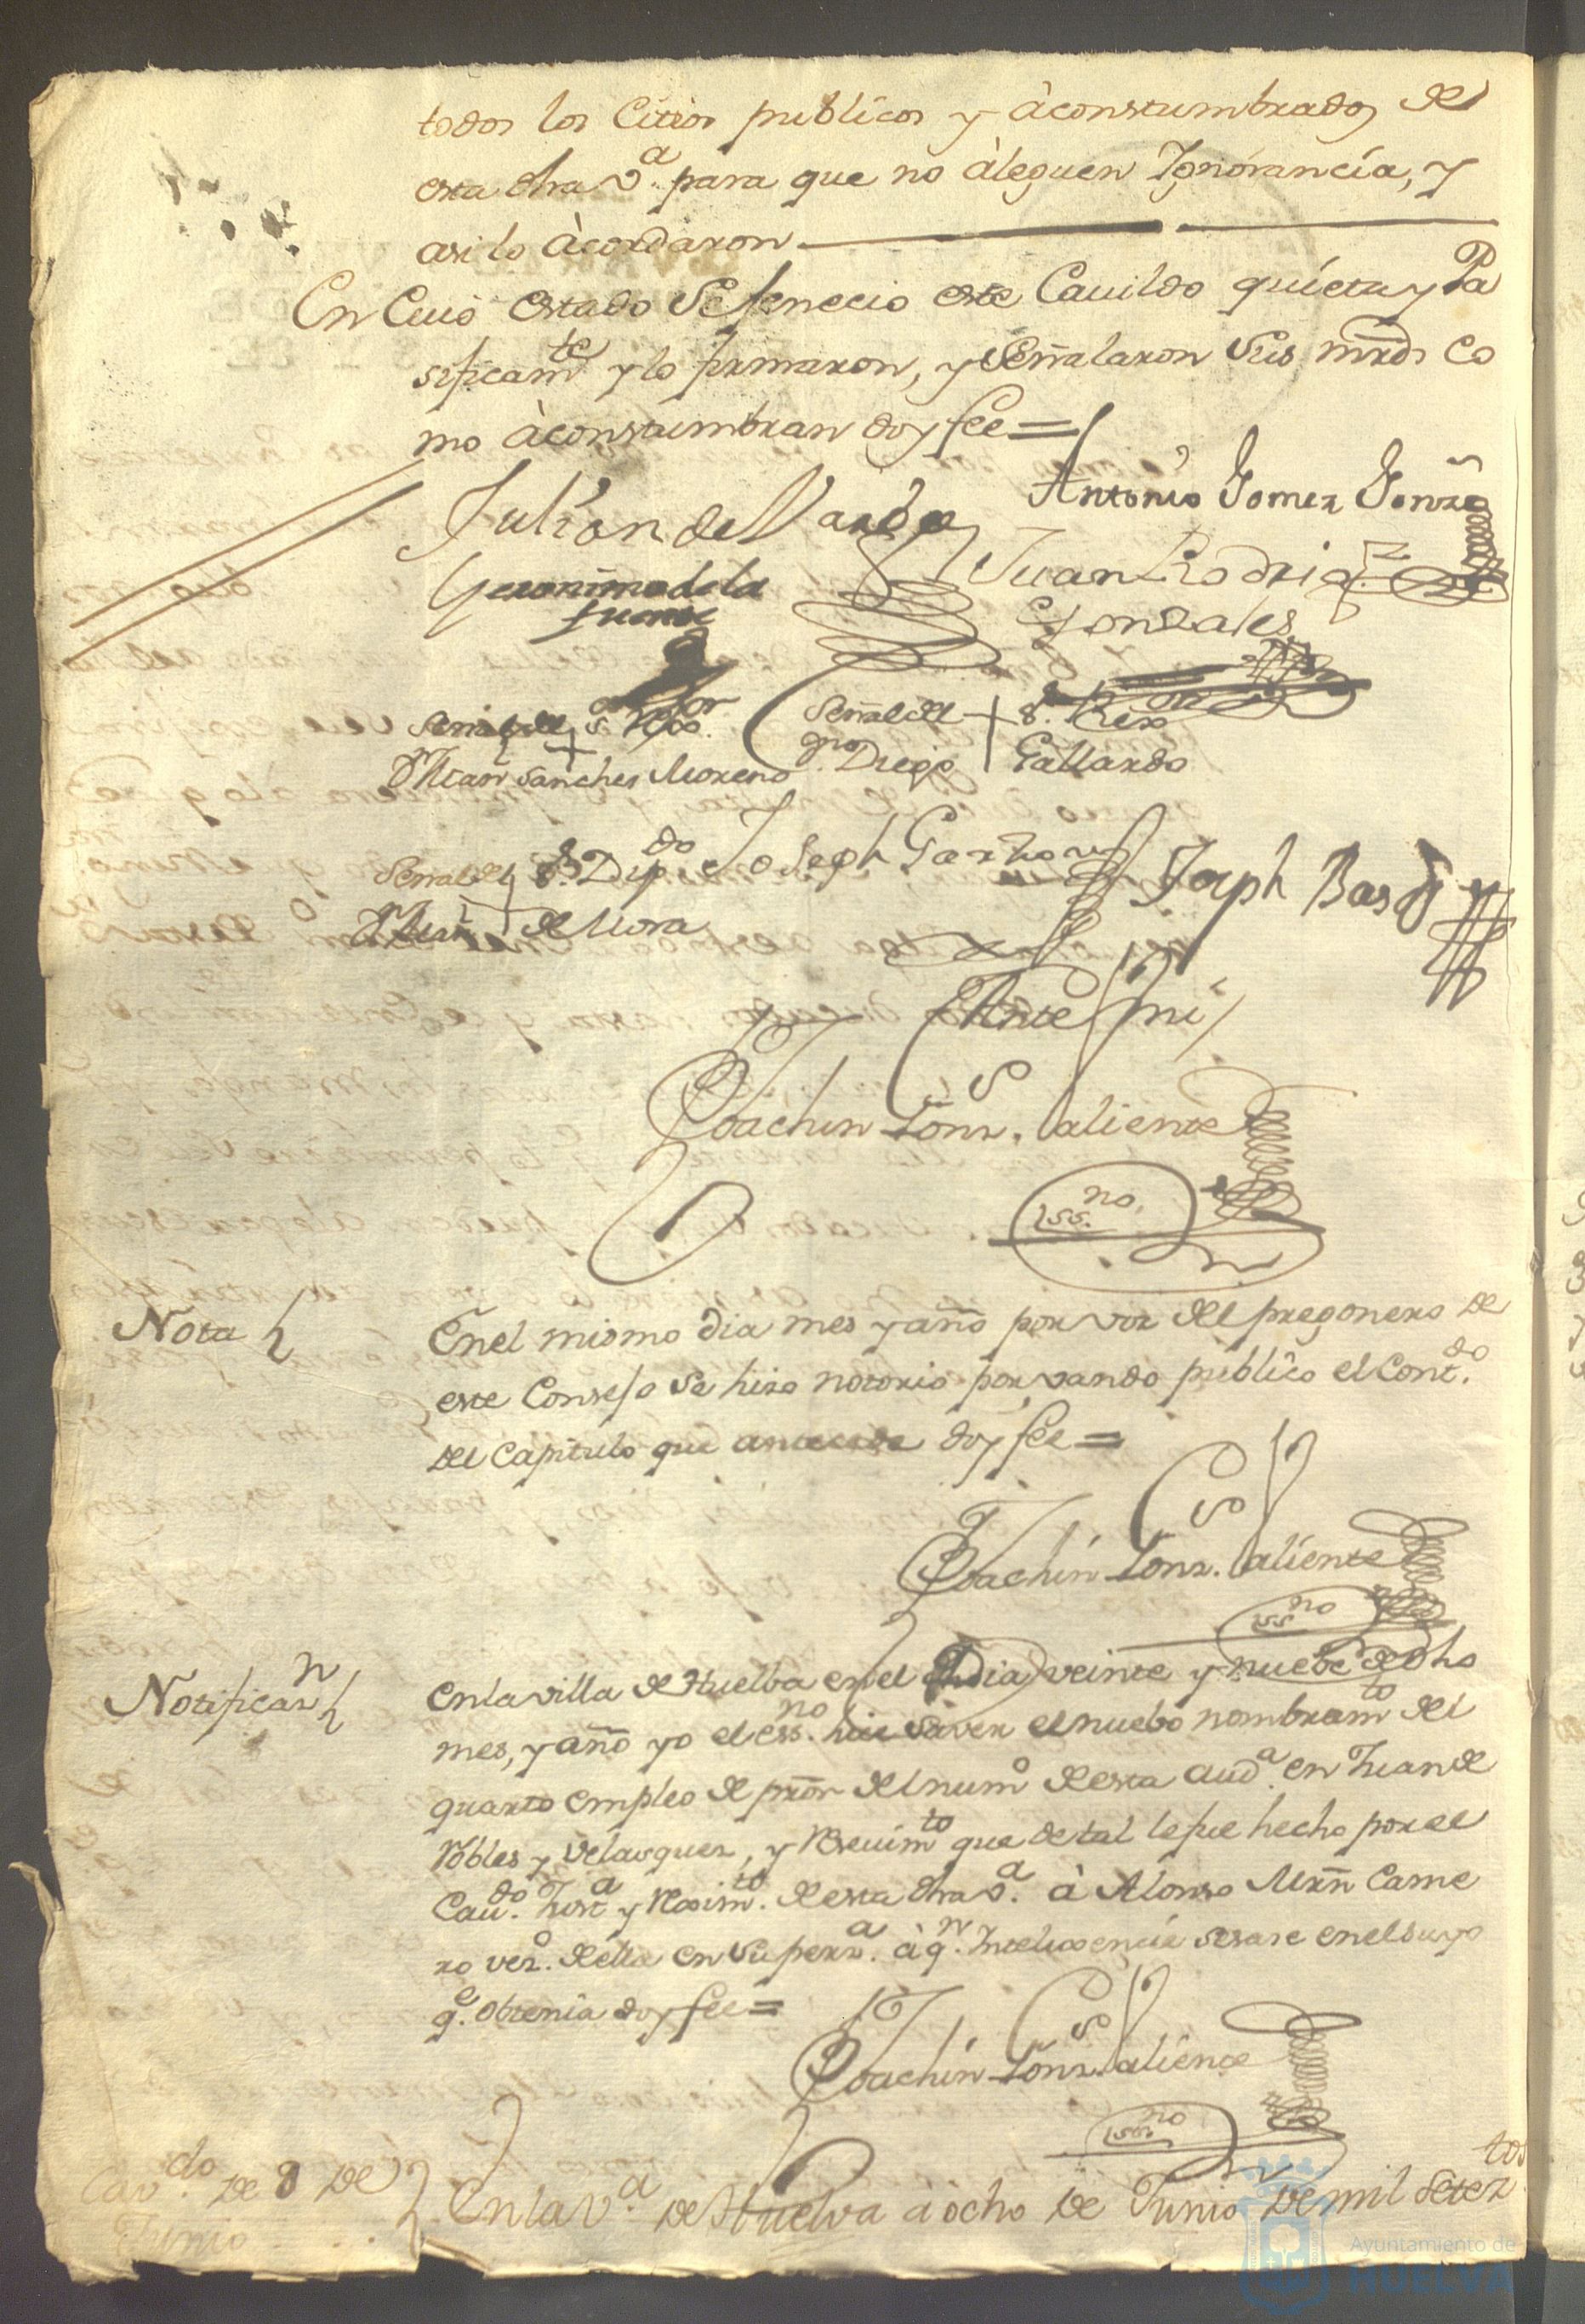 todos los Citios publicos y àconstumbrados de
esta dha v.ª para que no àleguen Ygnorancia, y
asi lo àcordaron
En Cuio estado Se fenecio este Cauildo quieta y Pa
sificamte y lo firmaron, y Señalaron Sus mrds Co
mo àconstumbran doy fee =
Antonio Gomez Gonzs
Julian de
Juan Rodrig.z
Geronimo de la
fuente
Gonzales
Señal del s. Rexor
Señal del + s. Rexor
Juan Sanches Moreno
Diego Gallardo
Señal del + s. Dipdo
Joseph Garzon
Joseph
de Mora
Ante mi
Joachin Gonz. Valiente
ssno
Nota
En el mismo dia mes y año por voz del pregonero de
este Consejo Se hizo notorio por vando publico el Cont.do
del Capitulo que antecede doy fee =
Joachin Gonz. Valiente
ssno
Notificazn
En la villa de Huelba en el dia veinte y nueve de dho
mes, y año yo el essno. hice saver el nuebo nombramto del
quarto empleo de prór del numo de esta audª. en Juan de
Robles y Velasquez, y Reseuimto que de tal le fue hecho por el
Caudo. Justª y Reximto. de esta dha vª. à Alonso Mrñ Came
ro vezo. de ella en su perzª. à qn. Inteligencia sesase en el suyo
qe. obtenia doy fee =
Joachin Gonz. Valiente
ssno
Cavdo. de 8 de
Junio
En la Vª. de Huelva a ocho de Junio de mil Setez
tos
Ayuntamiento de
HUELVA